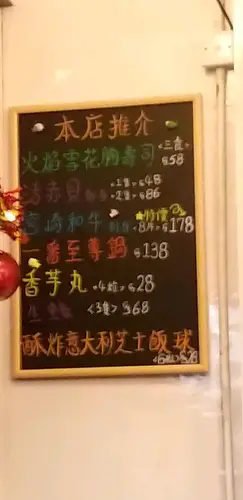 本店推介
火焰雪花腩壽司 <三貫> $58
赤貝 <1隻> $48
<2隻> $86
宮崎和牛 ★特價 <8片> $178
一番至尊鍋 $138
香芋丸 <4粒> $28
<3隻> $68
酥炸意大利芝士飯球